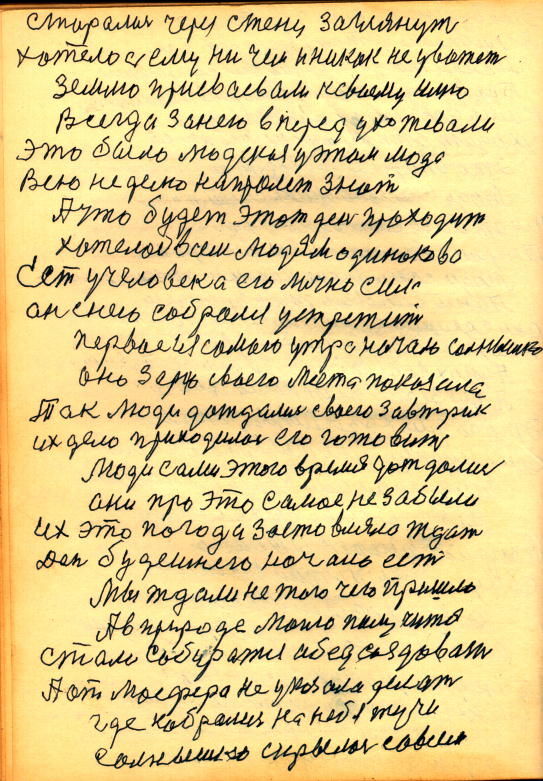 старался через стену заглянут
хотелос ему ни чем и никак не уважет
Землю присваевали к своему
Всегда за нею вперед ухожевали
Это было людская у этом мода
Всю неделю напролет знат
А что будет этот ден проходит
хотелос всем людям одинаково
Ест у человека его лично сила
он с нею собрался устретит
первое с самого утра начало солнышко
оно Зар своего места показала
Так люди дождалис своего завтрик
их дело приходилос его готовит
Люди сами этого время дождалис
они про это самое не забыли
Их это погода заставляла ждат
Ден будешнего начало ест
Мы ждали не того чего пришло
А в природе могло получится
стали собиратся обед создават
Атмосфера не указала делат
где набралис на небе тучи
Солнышко скрылос совсем